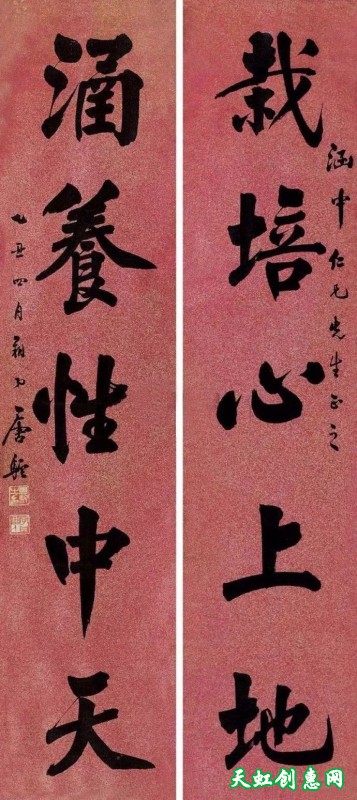 栽培心上地
涵中仁兄先生正之
涵養性中天
乙丑四月朔日唐駝
天虹创惠网